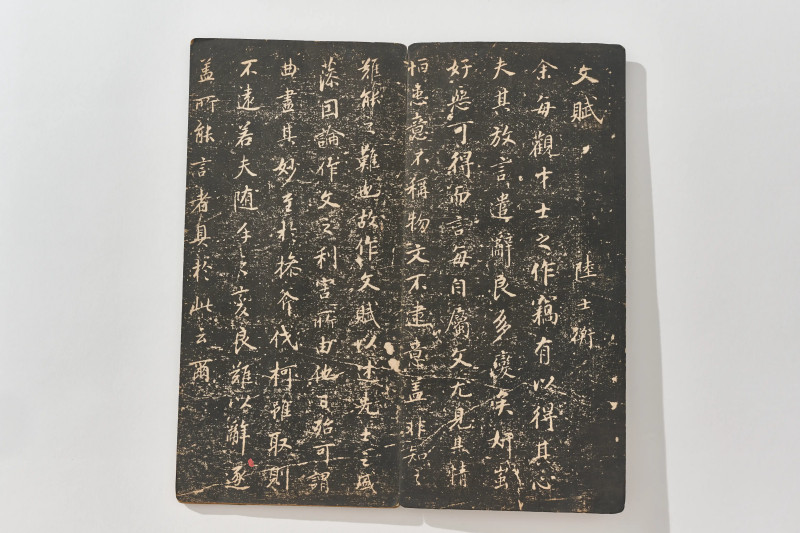 文賦 陸士衡
余每觀才士之作竊有以得其心
夫其放言遣辭良多變矣妍蚩
好惡可得而言每自屬文尤見其情
恒患意不稱物文不逮意盖非知之
難能之難也故作文賦以述先士之盛
藻因論作文之利害所由他日殆可謂
曲盡其妙至於操斧伐柯雖取則
不遠若夫随手之變良難以辭逐
盖所能言者具於此云爾